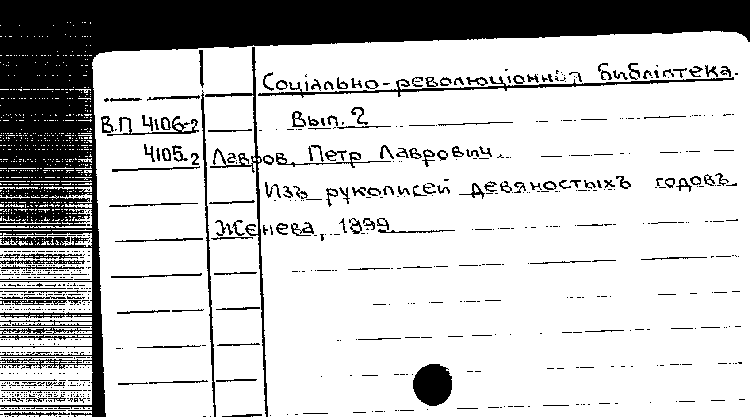 Соціально-революціонная библіотека.
В.П 4106-2 Вып. 2
4105.2 Лавров, Петр Лаврович.
Изъ рукописей девяностыхъ годовъ
Женева, 1899